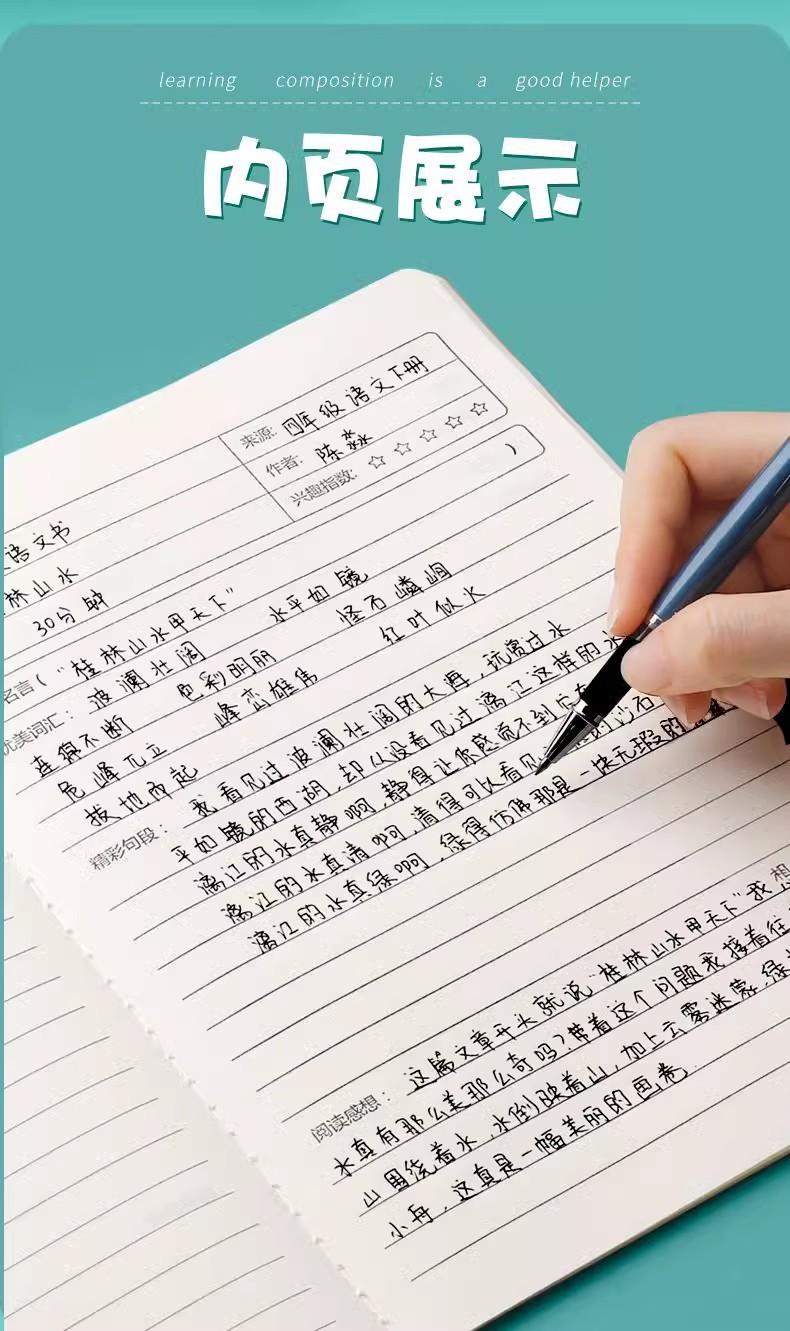 learning composition is a good helper
内页展示
来源: 四年级语文下册
作者: 陈淼
兴趣指数: ☆ ☆ ☆ ☆ ☆
)
语文书
林山水
30分钟
名言("桂林山水甲天下"
优美词汇: 波澜壮阔 水平如镜
连绵不断 色彩明丽 怪石嶙峋
危峰兀立 峰峦雄伟 红叶似火
拔地而起
精彩句段: 我看见过波澜壮阔的大海,玩赏过水
平如镜的西湖,却从没看见过漓江这样的水
漓江的水真静啊,静得让你感觉不到它在
漓江的水真清啊,清得可以看见 的沙石
漓江的水真绿啊,绿得仿佛那是一块无瑕的
阅读感想: 这篇文章开头就说"桂林山水甲天下"我想
水真有那么美那么奇吗?带着这个问题我接着往
山围绕着水,水倒映着山,加上云雾迷蒙,绿
小舟,这真是一幅美丽的画卷.